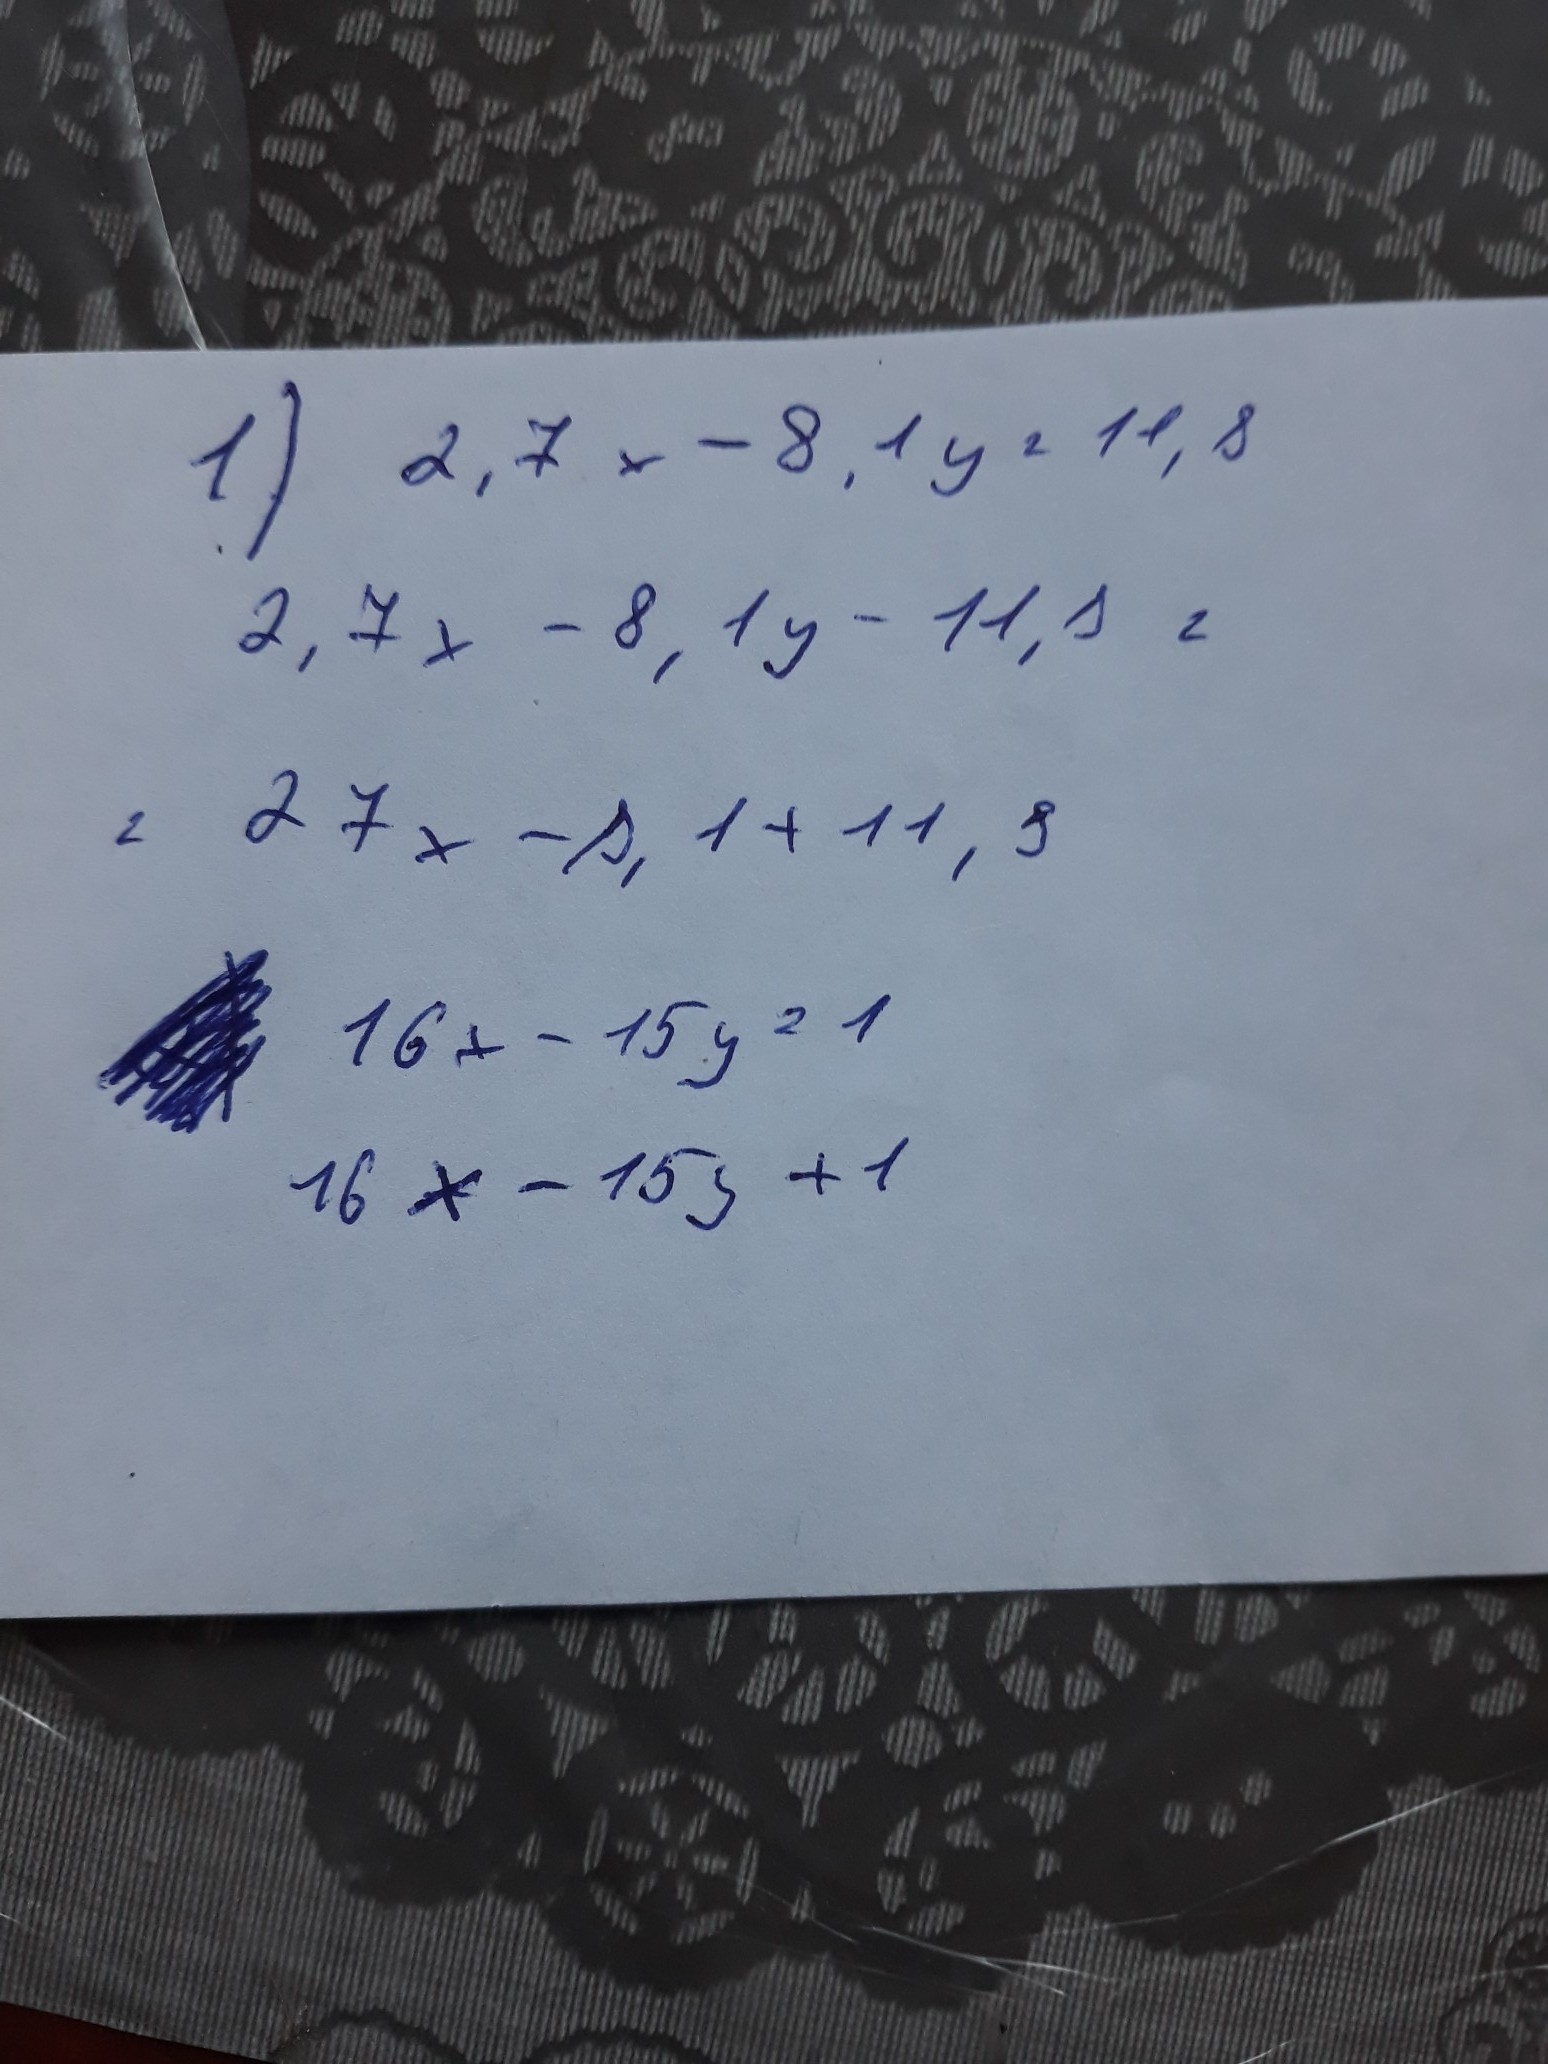 1) 2,7x - 8,1y = 11,8
2,7x - 8,1y - 11,8 =
= 27x - 8,1 + 11,8
16x - 15y = 1
16x - 15y + 1